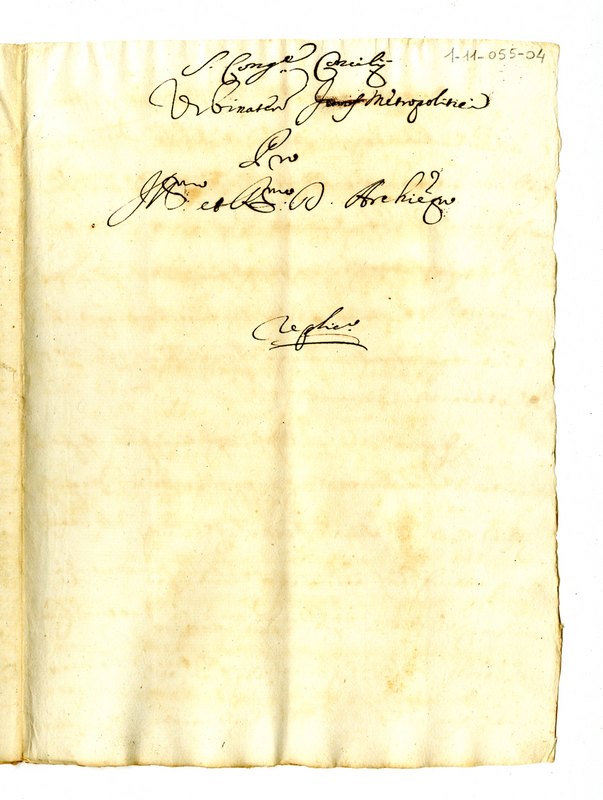 1-11-055-04
S. Cong.e Concilij
Urbinaten Metropolitici
Pro
Ill.mo et R.mo D. Archiepo
Replica